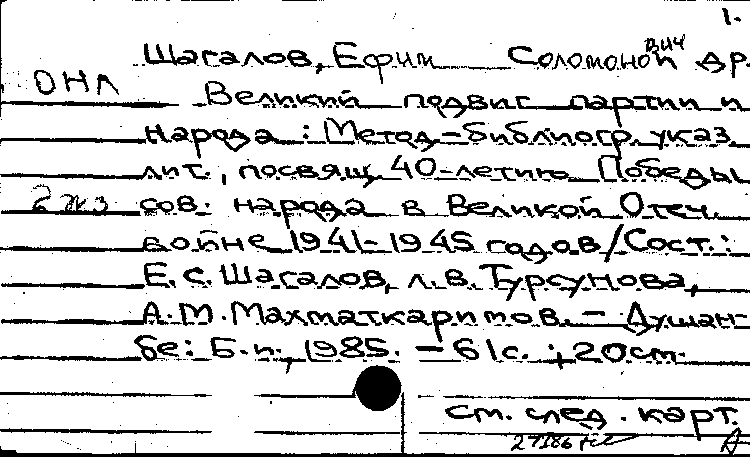 1.
Шагалов, Ефим Соломонович др.
ОНЛ Великий подвиг партии и
народа : Метод-библиогр. указ.
лит., посвящ. 40-летию Победы
2 экз сов. народа в Великой Отеч.
войне 1941-1945 годов/Сост.:
Е.С. Шагалов, Л.В. Турсунова,
А.М. Махматкаримов. - Душан-
бе: Б.и., 1985. - 61с. ; 20см.
см. след. карт.
27186